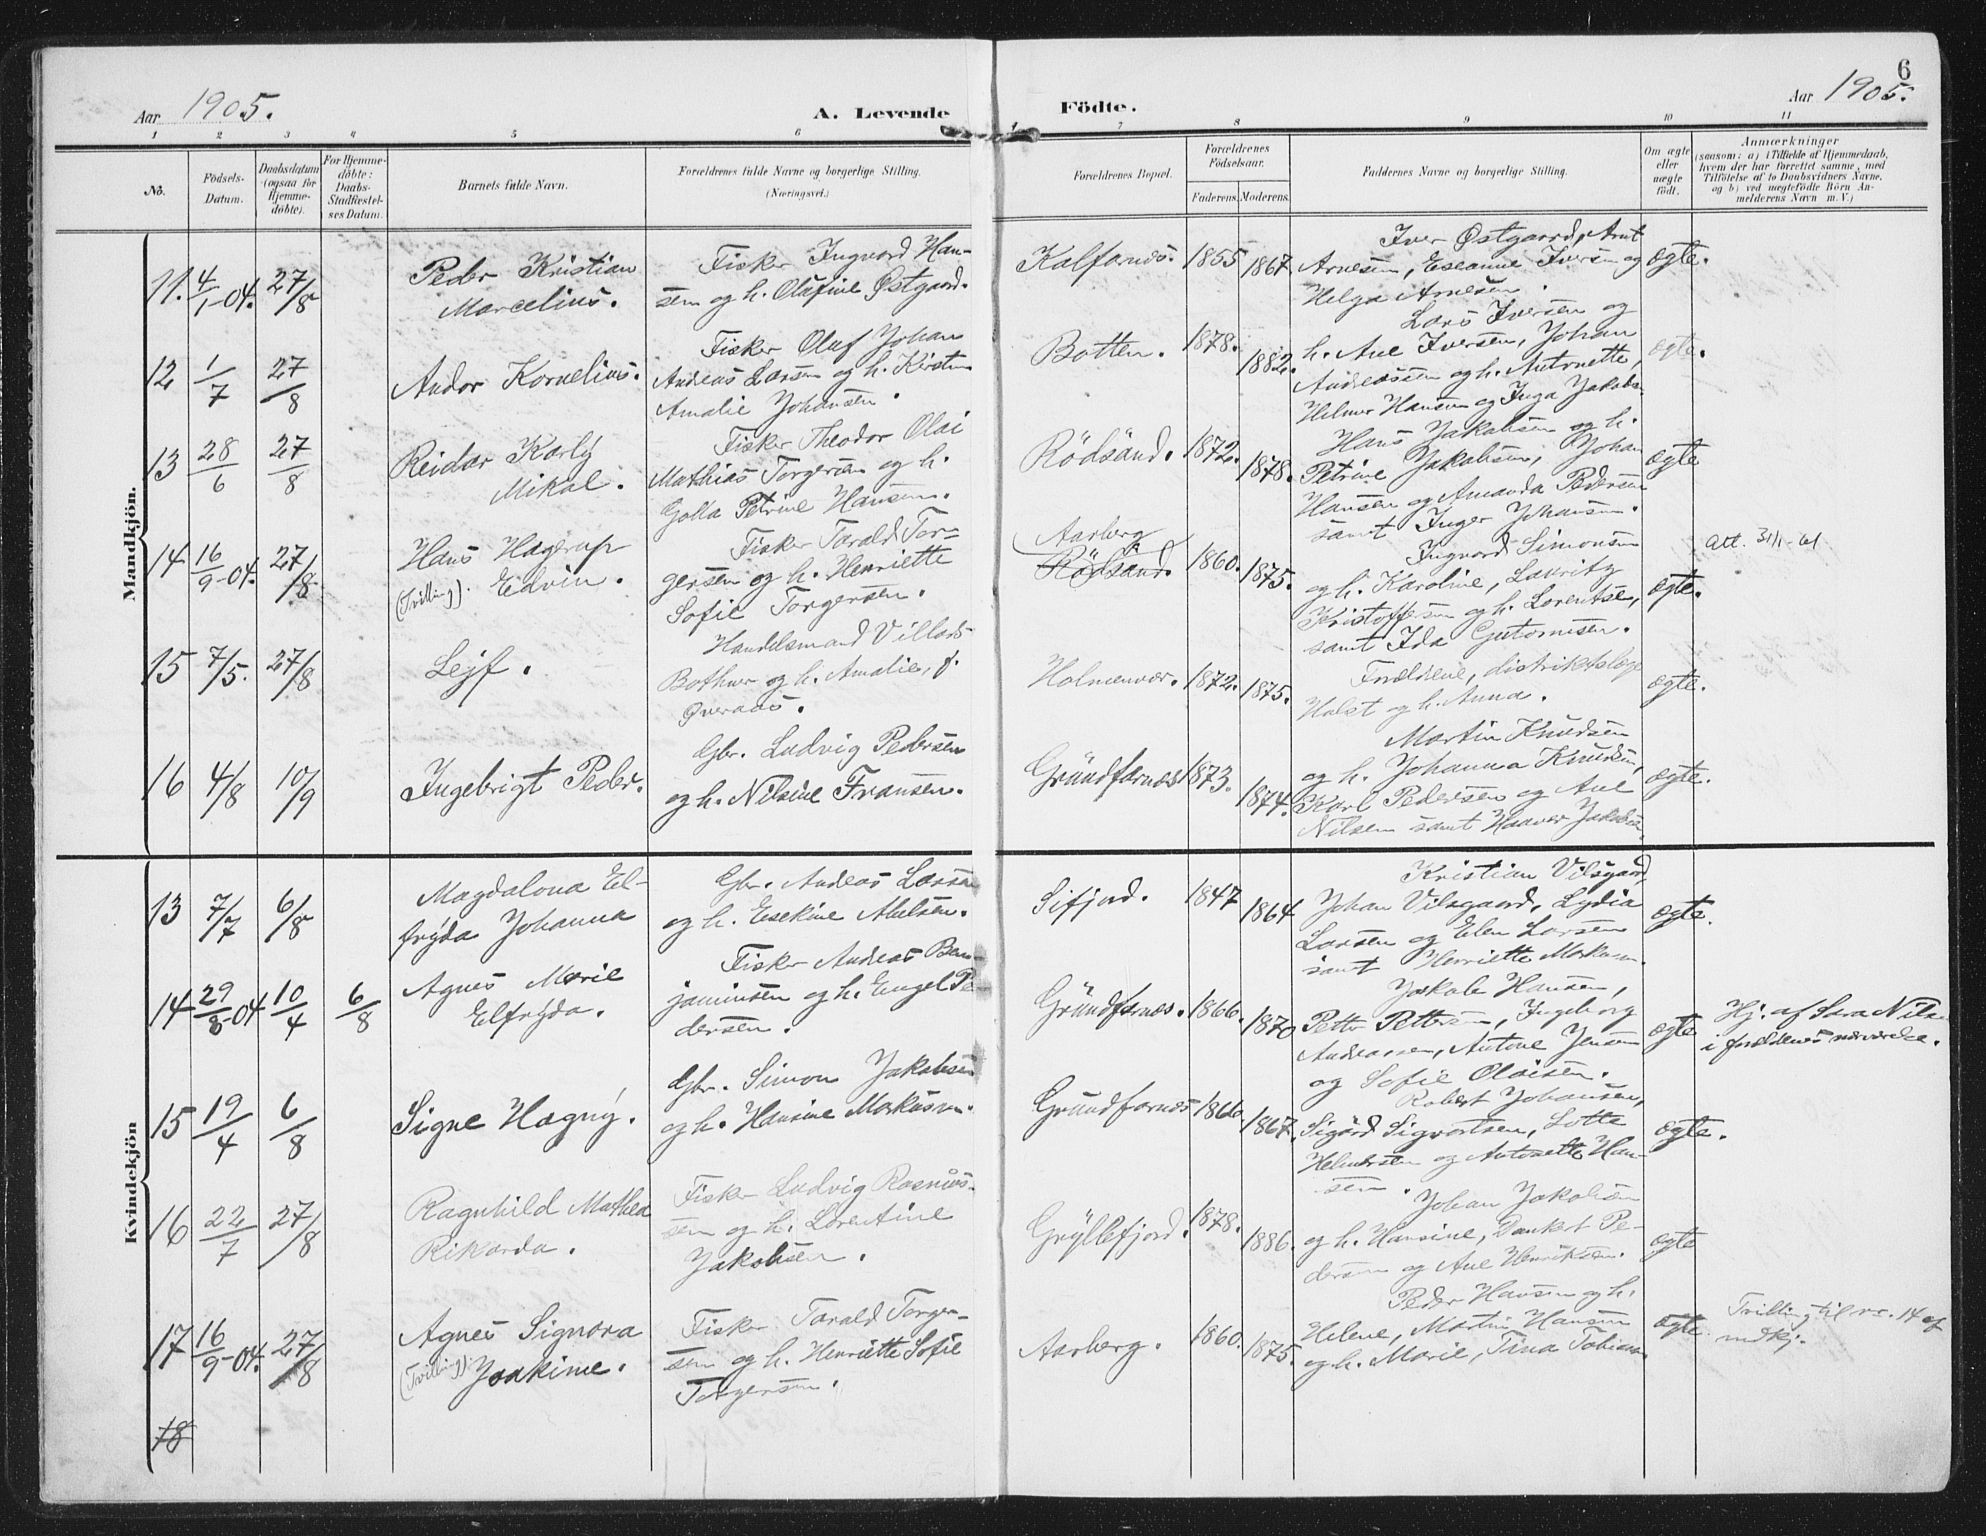 6
Aar 1905.
A. Levende Födte.
Aar 1905.
1 2 3 4 5 6 7 8 9 10 11
No.
Födsels-Datum.
Daabsdatum (ogsaa for Hjemmedöbte).
For Hjemmedöbte: Daabs-Stadfæstelses Datum.
Barnets fulde Navn.
Forældrenes fulde Navne og borgerlige Stilling.
(Næringsvei.)
Forældrenes Bopæl.
Forældrenes Födselsaar.
Faderens. Moderens.
Faddernes Navne og borgerlige Stilling.
Om ægte eller uægte født.
Anmærkninger
(saasom: a) i Tilfælde af Hjemmedaab, hvem der har forrettet samme, med Tilföielse af to Daabsvidners Navne, og b) ved uægtefödte Börn Anmelderens Navn m. V.)
Mandkjön.
11. 4/1-04. 27/8
Peder Kristian
Marcelius.
Fisker Ingvard Han-
sen og h. Olufine Østgaard.
Kalfarnæs. 1855 1867.
Iver Østgaard, Arnt
Arnesen, Eseanne Iversen og
Helga Arnesen.
ægte.
12 1/7 27/8
Andor Kornelius.
Fisker Oluf Johan
Andreas Larsen og h. Kirstin
Amalie Johansen.
Botten. 1878. 1882.
Lars Iversen og
h. Ane Iversen, Johan
Andreassen og h. Antonette,
Helmer Hansen og Inga Jakobs.
ægte.
13 28/6 27/8
Reidar Karly
Mikal.
Fisker Theodor Olai
Mathias Torgersen og h.
Golla Petrine Hansen.
Rödsand. 1872. 1878.
Hans Jakobsen og h.
Petrine Jakobsen, Johan
Hansen og Amanda Pedersen
samt Inger Johansen.
ægte
14 16/9-04. 27/8
Hans Hagerup
(Tvilling). Edvin.
Fisker Tarald Tor-
gersen og h. Henriette
Sofie Torgersen.
Aarberg
Rödsand. 1860. 1875.
Ingvard Simonsen
og h. Karoline, Lauritz
Kristoffersen og h. Lorentse,
samt Ida Gutormsen.
ægte.
att. 31/1-61
15 7/5. 27/8
Lejf.
Handelsmand Villads
Bothner og h. Amalie, f.
Øveraas.
Holmenvær. 1872. 1875.
Forældrene, distriktslæge
Holst og h. Anna.
ægte.
16 4/8 10/9
Ingebrigt Peder.
Gbr. Ludvig Pedersen
og h. Nilsine Fransen.
Grundfarnæs 1873. 1874.
Martin Knudsen
og h. Johanna Knudsen,
Karl Pedersen og Ane
Nilsen samt Haaver Jakobs.
ægte.
Kvindekjön
13 7/7 6/8
Magdalona El-
fryda Johanna
Gbr. Andreas Larsen
og h. Esekine Abelsen.
Sifjord. 1847 1864
Kristian Vilsgaard,
Johan Vilsgaard, Lydia
Larsen og Elen Larsen
samt Henriette Markusen.
ægte.
14 29/8-04 10/4 6/8
Agnes Marie
Elfryda.
Fisker Andreas Ben-
jaminsen og h. Engel Pe-
dersen.
Grundfarnæs. 1866. 1870
Jakob Hansen,
Petter Pettersen, Ingeborg
Andreassen, Antone Jensen
og Sofie Olaisen.
ægte
Hj. af Sara Nils.
i forældrenes nærværelse.
15 19/4 6/8
Signe Hagny.
Gbr. Simon Jakobsen
og h. Hansine Markusen.
Grundfarnæs 1866 1867.
Robert Johansen,
Sigurd Sigvartsen, Lotte
Helmersen og Antonette Han-
sen.
ægte.
16 22/7 27/8
Ragnhild Mathea
Rikarda.
Fisker Ludvig Rasmus-
sen og h. Lorentine
Jakobsen.
Gryllefjord. 1878. 1886.
Johan Jakobsen
og h. Hansine, Dankert Pe-
dersen og Ane Henriksen.
ægte
17 16/9-04. 27/8
Agnes Signora
(Tvilling). Joakime.
Fisker Tarald Torger-
sen og h. Henriette Sofie
Torgersen.
Aarberg. 1860. 1875.
Peder Hansen og h.
Helene, Martin Hansen
og h. Marie, Tina Tobias.
ægte
Tvilling til nr. 14 af
mdkj.
18